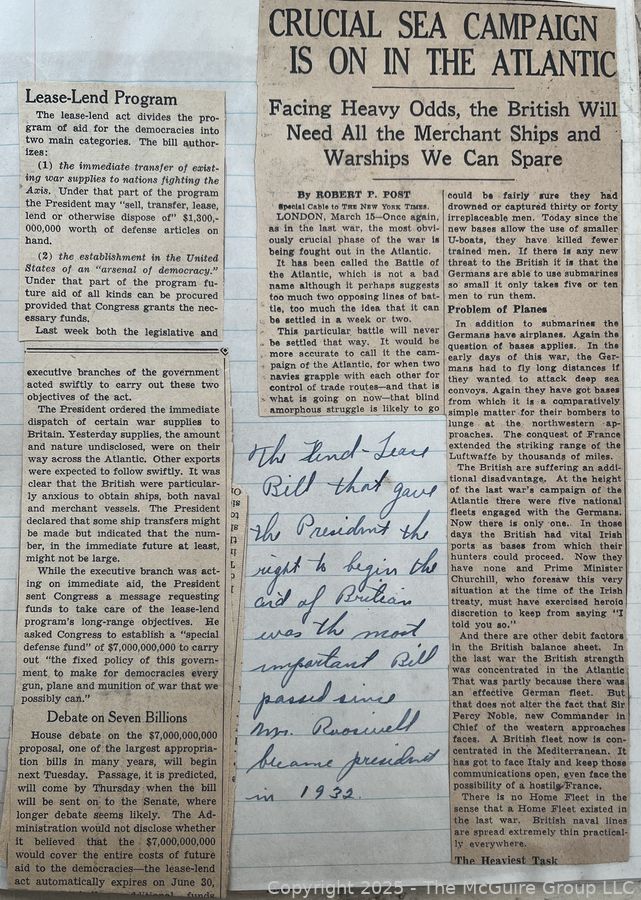 Lease-Lend Program
The lease-lend act divides the pro-
gram of aid for the democracies into
two main categories. The bill author-
izes:
(1) the immediate transfer of exist-
ing war supplies to nations fighting the
Axis. Under that part of the program
the President may "sell, transfer, lease,
lend or otherwise dispose of" $1,300,-
000,000 worth of defense articles on
hand.
(2) the establishment in the United
States of an "arsenal of democracy."
Under that part of the program fu-
ture aid of all kinds can be procured
provided that Congress grants the nec-
essary funds.
Last week both the legislative and
executive branches of the government
acted swiftly to carry out these two
objectives of the act.
The President ordered the immediate
dispatch of certain war supplies to
Britain. Yesterday supplies, the amount
and nature undisclosed, were on their
way across the Atlantic. Other exports
were expected to follow swiftly. It was
clear that the British were particular-
ly anxious to obtain ships, both naval
and merchant vessels. The President
declared that some ship transfers might
be made but indicated that the num-
ber, in the immediate future at least,
might not be large.
While the executive branch was act-
ing on immediate aid, the President
sent Congress a message requesting
funds to take care of the lease-lend
program's long-range objectives. He
asked Congress to establish a "special
defense fund" of $7,000,000,000 to carry
out "the fixed policy of this govern-
ment to make for democracies every
gun, plane and munition of war that we
possibly can."
Debate on Seven Billions
House debate on the $7,000,000,000
proposal, one of the largest appropria-
tion bills in many years, will begin
next Tuesday. Passage, it is predicted,
will come by Thursday when the bill
will be sent on to the Senate, where
longer debate seems likely. The Ad-
ministration would not disclose whether
it believed that the $7,000,000,000
would cover the entire costs of future
aid to the democracies—the lease-lend
act automatically expires on June 30,
additional funds
CRUCIAL SEA CAMPAIGN
IS ON IN THE ATLANTIC
Facing Heavy Odds, the British Will
Need All the Merchant Ships and
Warships We Can Spare
By ROBERT P. POST
Special Cable to THE NEW YORK TIMES.
LONDON, March 15—Once again,
as in the last war, the most obvi-
ously crucial phase of the war is
being fought out in the Atlantic.
It has been called the Battle of
the Atlantic, which is not a bad
name although it perhaps suggests
too much two opposing lines of bat-
tle, too much the idea that it can
be settled in a week or two.
This particular battle will never
be settled that way. It would be
more accurate to call it the cam-
paign of the Atlantic, for when two
navies grapple with each other for
control of trade routes—and that is
what is going on now—that blind
amorphous struggle is likely to go
could be fairly sure they had
drowned or captured thirty or forty
irreplaceable men. Today since the
new bases allow the use of smaller
U-boats, they have killed fewer
trained men. If there is any new
threat to the British it is that the
Germans are able to use submarines
so small it only takes five or ten
men to run them.
Problem of Planes
In addition to submarines the
Germans have airplanes. Again the
question of bases applies. In the
early days of this war, the Ger-
mans had to fly long distances if
they wanted to attack deep sea
convoys. Again they have got bases
from which it is a comparatively
simple matter for their bombers to
lunge at the northwestern ap-
proaches. The conquest of France
extended the striking range of the
Luftwaffe by thousands of miles.
The British are suffering an addi-
tional disadvantage. At the height
of the last war's campaign of the
Atlantic there were five national
fleets engaged with the Germans.
Now there is only one. In those
days the British had vital Irish
ports as bases from which their
hunters could proceed. Now they
have none and Prime Minister
Churchill, who foresaw this very
situation at the time of the Irish
treaty, must have exercised heroic
discretion to keep from saying "I
told you so."
And there are other debit factors
in the British balance sheet. In
the last war the British strength
was concentrated in the Atlantic.
That was partly because there was
an effective German fleet. But
that does not alter the fact that Sir
Percy Noble, new Commander in
Chief of the western approaches
faces. A British fleet now is con-
centrated in the Mediterranean. It
has got to face Italy and keep those
communications open, even face the
possibility of a hostile France.
There is no Home Fleet in the
sense that a Home Fleet existed in
the last war. British naval lines
are spread extremely thin practical-
ly everywhere.
The Heaviest Task
The Lend-Lease
Bill that gave
the President the
right to begin the
aid of Britian
was the most
important Bill
passed since
Mr. Roosevelt
became president
in 1932.
Copyright 2025 - The McGuire Group LLC